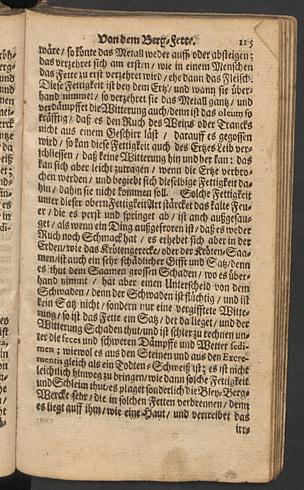 Von dem Berg-Fette. 125
wäre / so könte das Metall weder auff- oder absteigen:
das verzehret sich am ersten / wie in einem Menschen
das Fette zu erst verzehret wird / ehe dann das Fleisch.
Diese Fettigkeit ist bey dem Ertz / und wann sie über-
hand nimmet / so verzehret sie das Metall gantz / und
verdämpffet die Witterung auch / denn ist das oleum so
kräfftig / daß es den Ruch des Weins oder Trancks
nicht aus einem Geschirr läst / darauff es gegossen
wird / so kan diese Fettigkeit auch des Ertzes Leib ver-
schliessen / daß keine Witterung hin und her kan: das
kan sich aber leicht zutragen / wenn die Ertze verbro-
chen werden / und begiebt sich dieselbige Fettigkeit da-
hin / dahin sie nicht kommen soll. Solche Fettigkeit
unter dieser obern Fettigkeit Art stärcket das kalte Feu-
er / die es perst und springet ab / ist auch außgesau-
get / als wenn ein Ding außgefroren ist / daß es weder
Ruch noch Schmack hat / es erhebet sich aber in der
Erden / wie das Krötengerecke / oder der Kröten-Saa-
men / ist auch ein sehr schädlicher Gifft und Satz / denn
es thut dem Saamen grossen Schaden / wo es über-
hand nimmt / hat aber einen Unterscheid von dem
Schwaden / denn der Schwaden ist flüchtig / und ist
kein Satz nicht / sondern nur eine vergifftete Witte-
rung / so ist das Fette ein Satz / der da lieget / und der
Witterung Schaden thut / und ist schier zu rechnen un-
ter die feces und schweren Dämpffe und Wetter sedi-
men; wievol es aus den Steinen und aus den Excre-
mentis gleich als ein Todten-Schweiß ist; es ist nicht
leichtlich hinweg zu bringen / wie dann solche Fettigkeit
und Schleim thut / es plaget sonderlich die Bley-Berg-
Wercke sehr / die in solchen Fetten verbrennen / denn
es liegt auff ihm / wie eine Haut / und vertreibet das
irr-